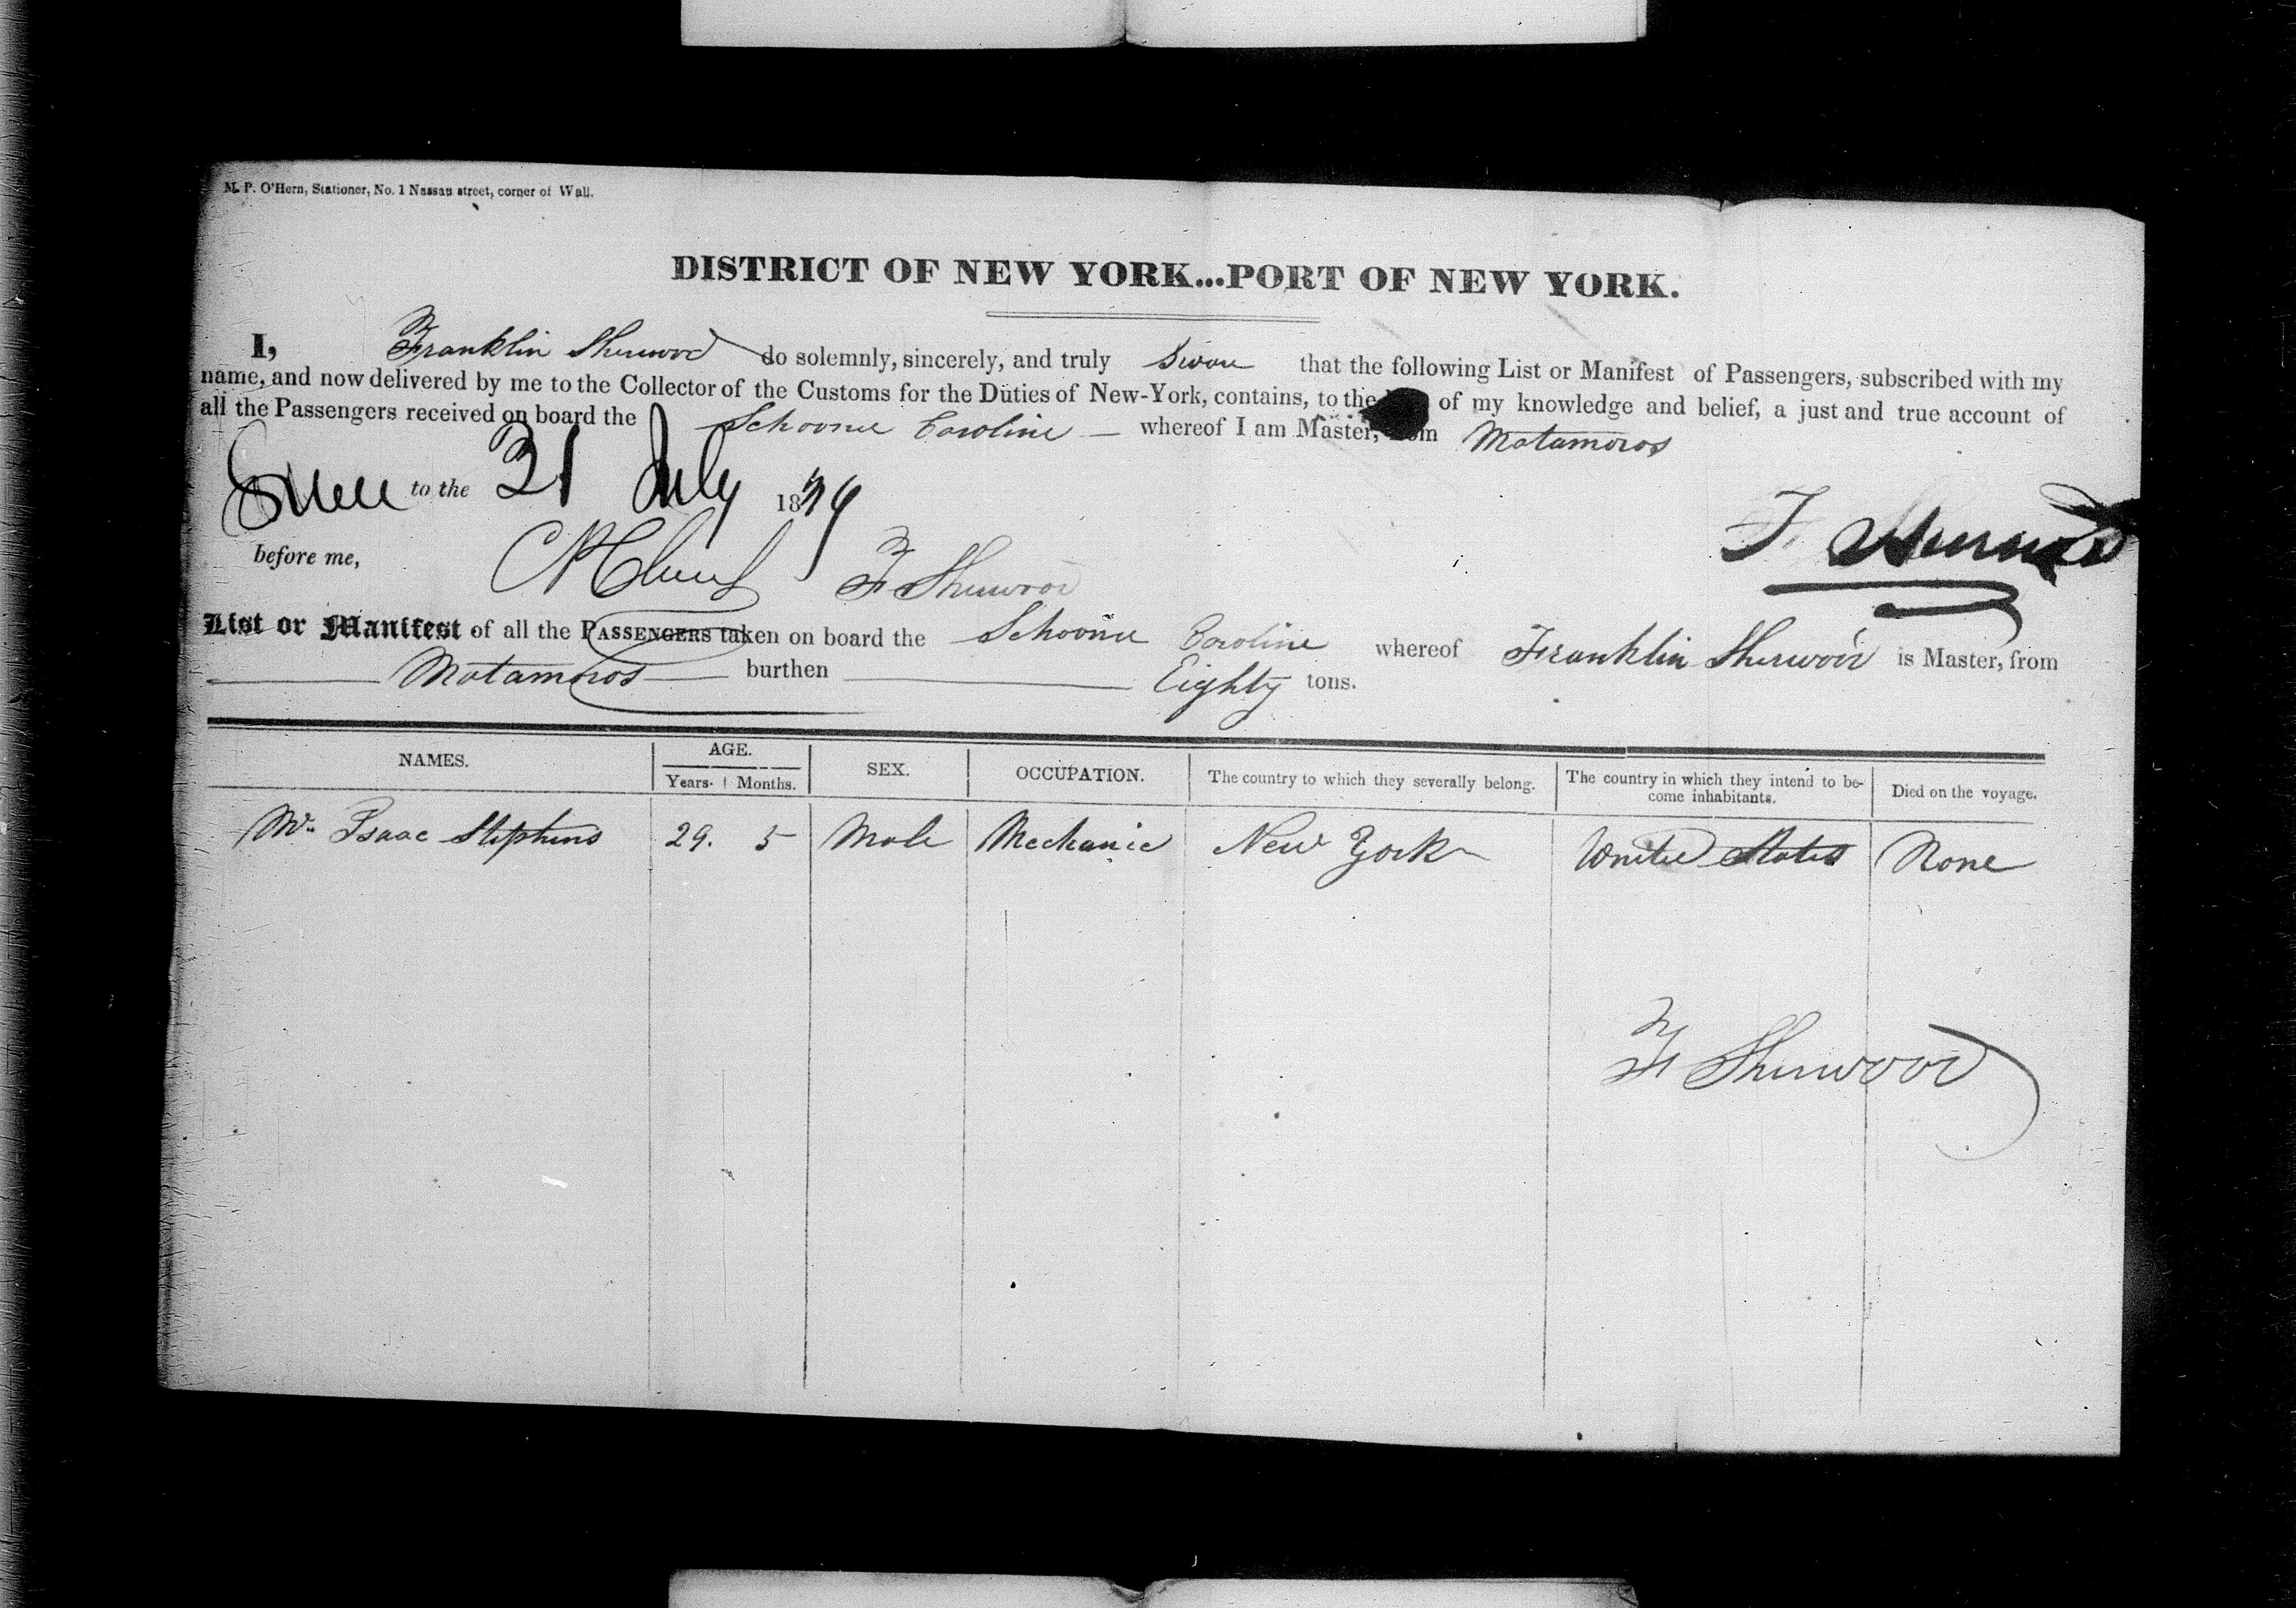 M. P. O'Hern, Stationer, No. 1 Nassau street, corner of Wall.
DISTRICT OF NEW YORK...PORT OF NEW YORK.
I, Franklin Sherwood do solemnly, sincerely, and truly Swear that the following List or Manifest of Passengers, subscribed with my
name, and now delivered by me to the Collector of the Customs for the Duties of New-York, contains, to the of my knowledge and belief, a just and true account of
all the Passengers received on board the Schooner Caroline — whereof I am Master, from Matamoros
to the 31 July 18
before me, F Sherwood
F Sherwood
List or Manifest of all the PASSENGERS taken on board the Schooner Caroline whereof Franklin Sherwood is Master, from
Matamoros burthen Eighty tons.
NAMES. AGE. Years. Months. SEX. OCCUPATION. The country to which they severally belong. The country in which they intend to become inhabitants. Died on the voyage.
Mr. Isaac Stephens 29. 5 Male Mechanic New York United States None
F Sherwood